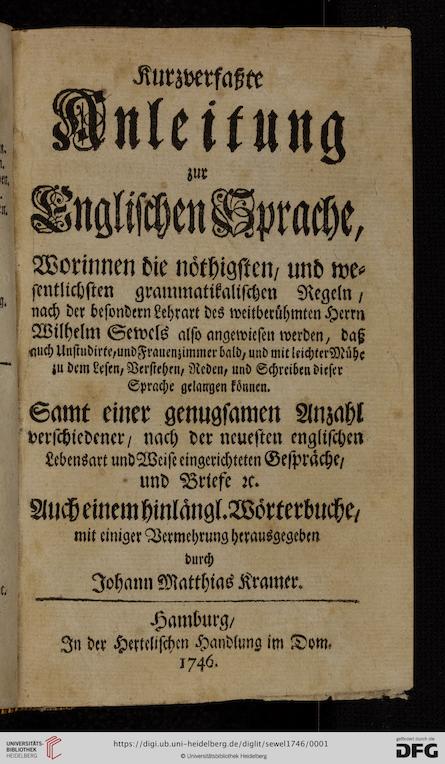 Kurzverfaßte
Anleitung
zur
Englischen Sprache,
Worinnen die nöthigsten/ und we-
sentlichsten grammatikalischen Regeln/
nach der besondern Lehrart des weitberühmten Herrn
Wilhelm Sewels also angewiesen werden, daß
auch Unstudirte, und Frauenzimmer bald, und mit leichter Mühe
zu dem Lesen, Verstehen, Reden, und Schreiben dieser
Sprache gelangen können.
Samt einer genugsamen Anzahl
verschiedener/ nach der neuesten englischen
Lebensart und Weise eingerichteten Gespräche/
und Briefe ꝛc.
Auch einem hinlängl. Wörterbuche/
mit einiger Vermehrung herausgegeben
durch
Johann Matthias Kramer.
Hamburg/
In der Hertelischen Handlung im Dom.
1746.
UNIVERSITÄTS-
BIBLIOTHEK
HEIDELBERG
https://digi.ub.uni-heidelberg.de/diglit/sewel1746/0001
© Universitätsbibliothek Heidelberg
gefördert durch die
DFG